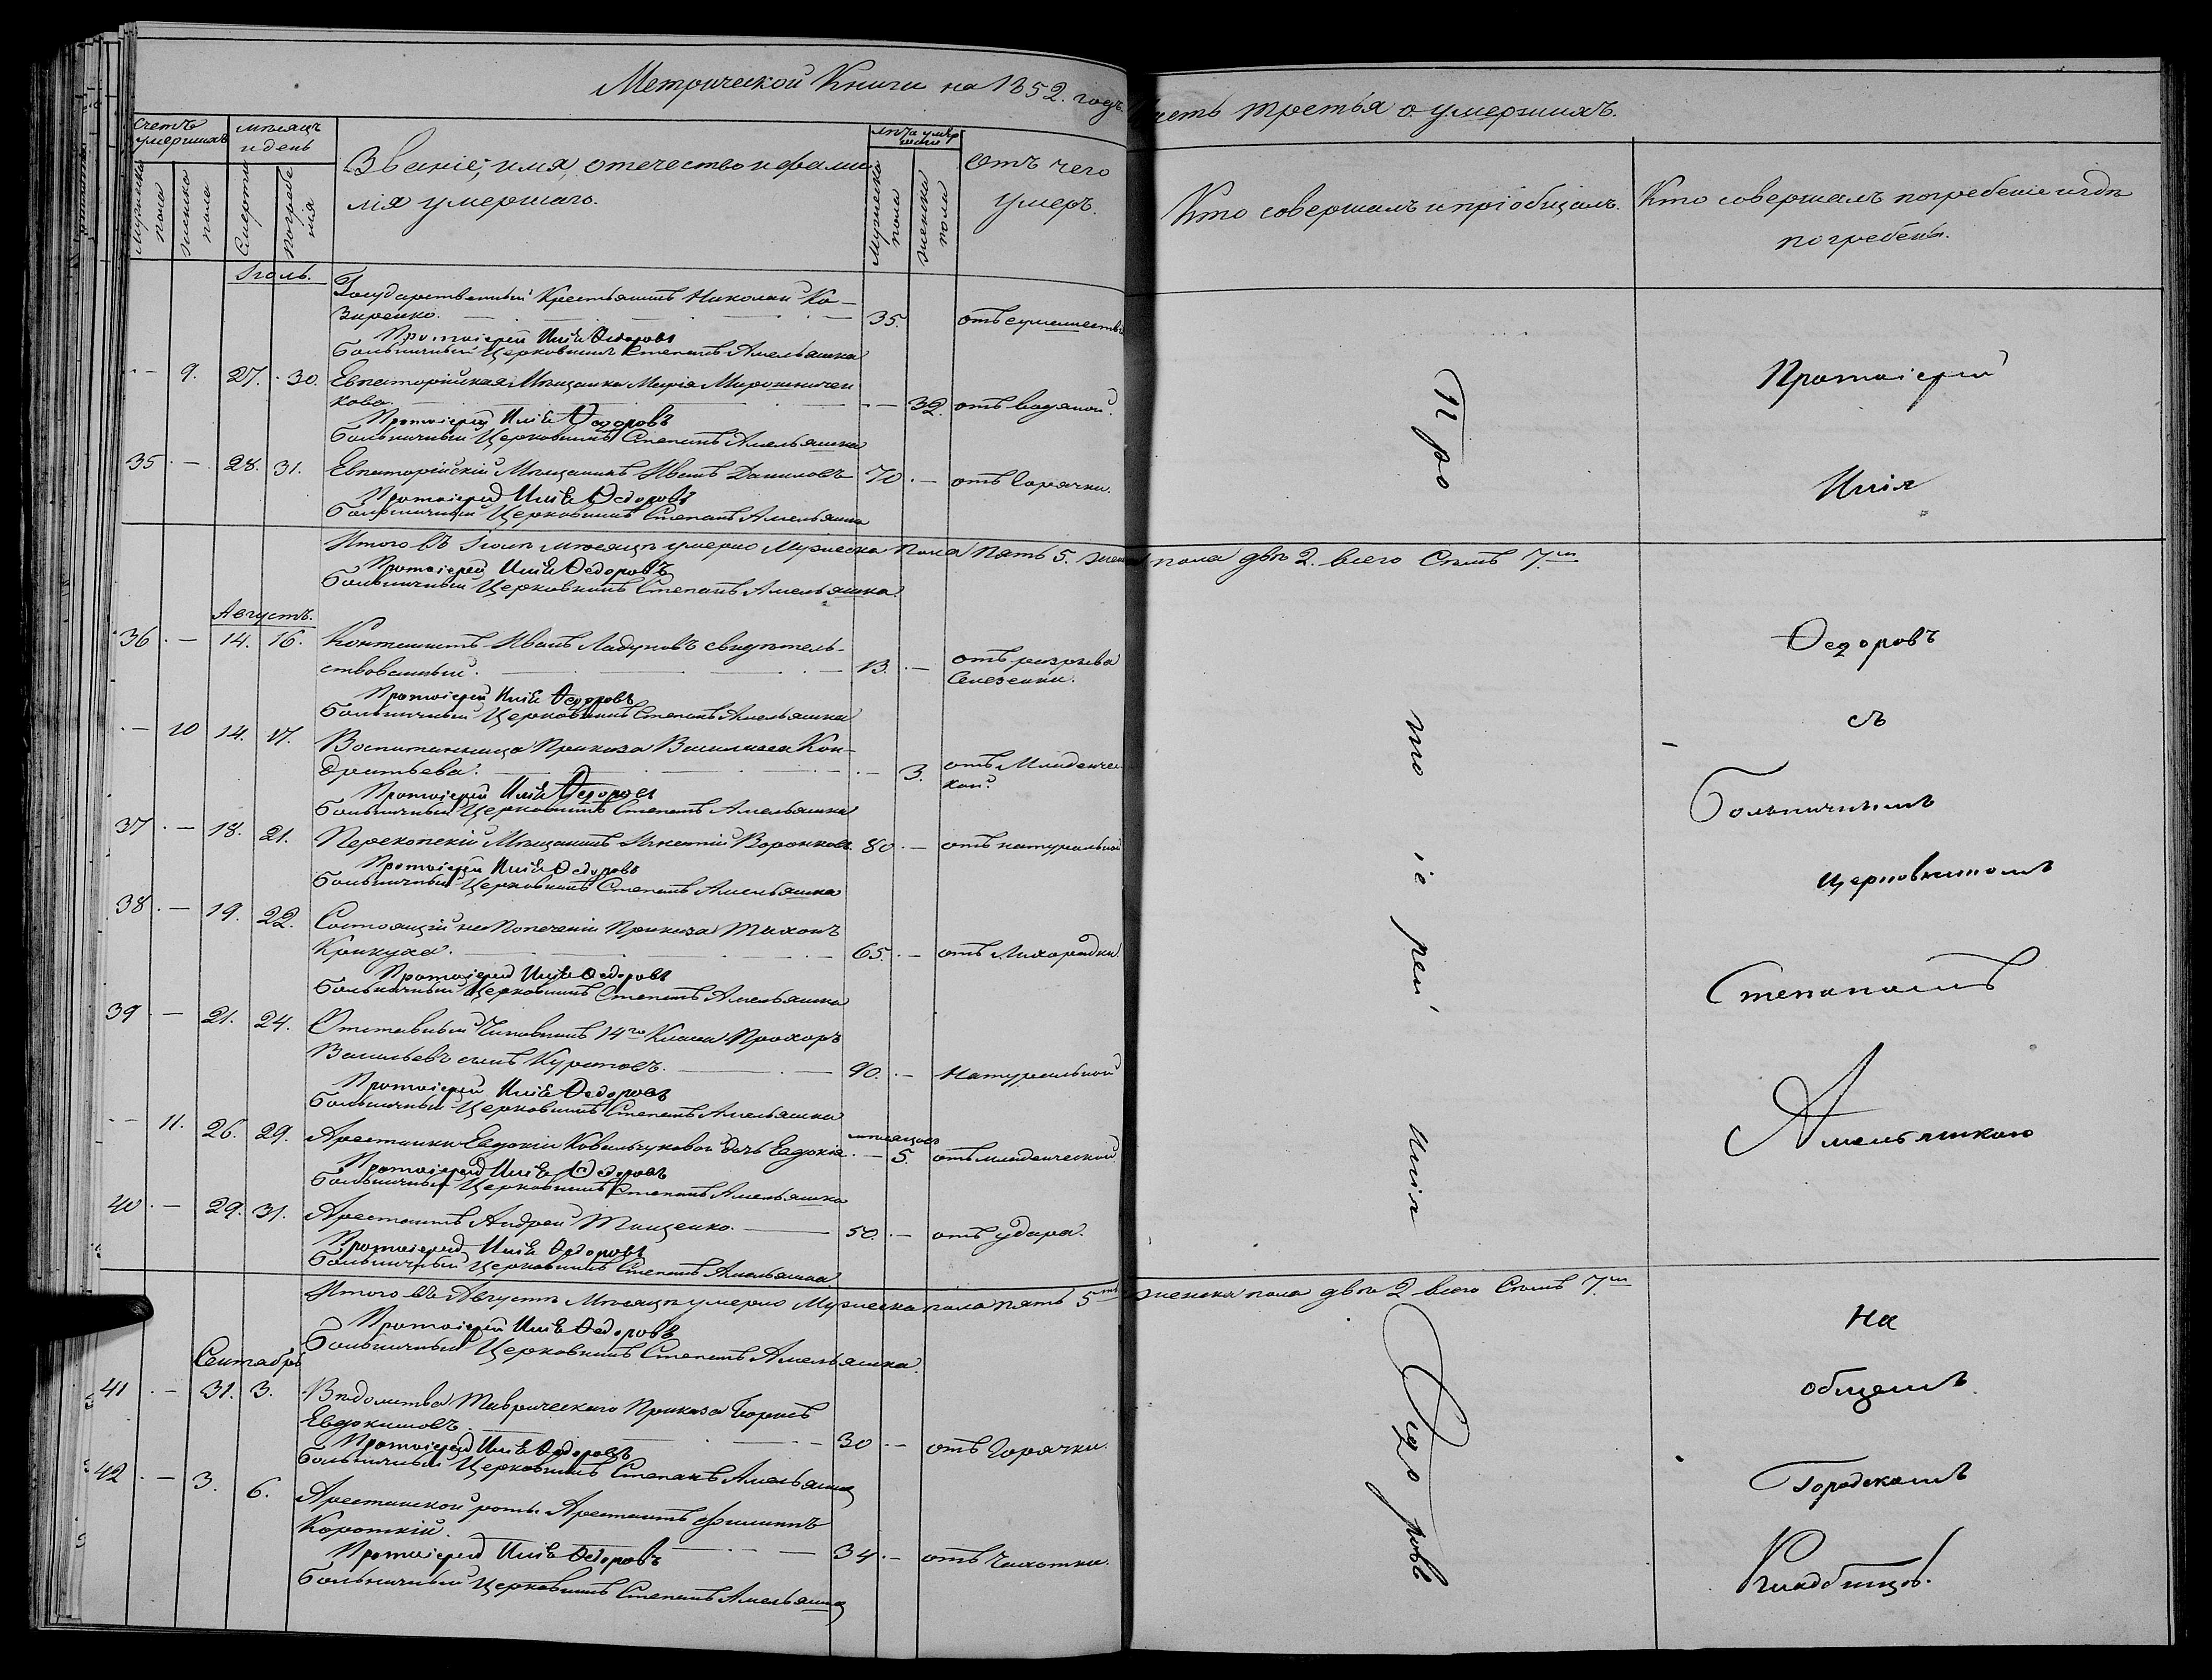 Метрической Книги на 1852. годъ. Часть третья о умершихъ.
Счетъ умершихъ
Мужеска пола
Женска пола
Мѣсяцъ и день
Смерти
Погребенія
Званіе, имя, отечество и фамилія умершаго.
Лѣта умершаго
Мужеска пола
Женска пола
Отъ чего умеръ.
Кто совершалъ и пріобщалъ.
Кто совершалъ погребеніе и гдѣ погребены.
Іюль.
Государственный Крестьянинъ Николай Ко-
зиренко. 35. отъ сумашеств
Протоіерей Илія Ѳедоровъ
Больничный Церковникъ Степанъ Амельяшка
— 9. 27. 30. Евпаторійская Мѣщанка Марія Мирошничен
кова. — 32. отъ водяной.
Протоіерей Илія Ѳедоровъ
Больничный Церковникъ Степанъ Амельяшка
35 — 28. 31. Евпаторійскій Мѣщанинъ Иванъ Даниловъ 70. — отъ Горячки.
Протоіерей Илія Ѳедоровъ
Больничный Церковникъ Степанъ Амельяшка
Итого въ Іюлѣ мѣсяцѣ умерло Мужеска пола пять 5. женска пола двѣ 2. всего Семь 7.
Протоіерей Илія Ѳедоровъ
Больничный Церковникъ Степанъ Амельяшка.
Августъ.
36 — 14. 16. Кантонистъ Иванъ Ладуновъ свидѣтель-
ствованный. 13. — отъ разрыва
Селезенки.
Протоіерей Илія Ѳедоровъ
Больничный Церковникъ Степанъ Амельяшка
— 10 14. 17. Воспитанница Приказа Василиса Кон-
дратьева. — 3. отъ Младенчес-
кой.
Протоіерей Илія Ѳедоровъ
Больничный Церковникъ Степанъ Амельяшка
37 — 18. 21. Перекопскій Мѣщанинъ Игнатій Воронковъ. 80 — отъ натуральной
Протоіерей Илія Ѳедоровъ
Больничный Церковникъ Степанъ Амельяшка
38 — 19. 22. Состоящій на Попеченіи Приказа Тихонъ
Крикуха. 65. — отъ Лихорадки.
Протоіерей Илія Ѳедоровъ
Больничный Церковникъ Степанъ Амельяшка
39 — 21. 24. Отставный Чиновникъ 14го Класа Прохоръ
Васильевъ сынъ Курстовъ. 90. — Натуральной
Протоіерей Илія Ѳедоровъ
Больничный Церковникъ Степанъ Амельяшка
— 11. 26. 29. Арестанки Евдокіи Ковальчуковой дочь Евдокія мѣсяцовъ — 5. отъ младенческой.
Протоіерей Илія Ѳедоровъ
Больничный Церковникъ Степанъ Амельяшка
40 — 29. 31. Арестантъ Андрей Тищенко. 50. — отъ удара.
Протоіерей Илія Ѳедоровъ
Больничный Церковникъ Степанъ Амельяшка
Итого въ Августѣ Мѣсяцѣ умерло Мужеска пола пять 5ть женска пола двѣ 2 всего Семь 7.
Протоіерей Илія Ѳедоровъ
Больничный Церковникъ Степанъ Амельяшка.
Сентябрь
41 — 31. 3. Вѣдомства Таврическаго Приказа Борисъ
Евдокимовъ 30 — отъ Горячки.
Протоіерей Илія Ѳедоровъ
Больничный Церковникъ Степанъ Амельяшка
42 — 3. 6. Арестанской роты Арестантъ Филиппъ
Короткій. 34. — отъ Чахотки.
Протоіерей Илія Ѳедоровъ
Больничный Церковникъ Степанъ Амельяшка
Про
то
іе
рей
Илія
Ѳедоровъ
Протоіерей
Илія
Ѳедоровъ
съ
Больничнымъ
Церковникомъ
Степаномъ
Амельяшкою
На
общемъ
Городскомъ
Кладбищѣ.